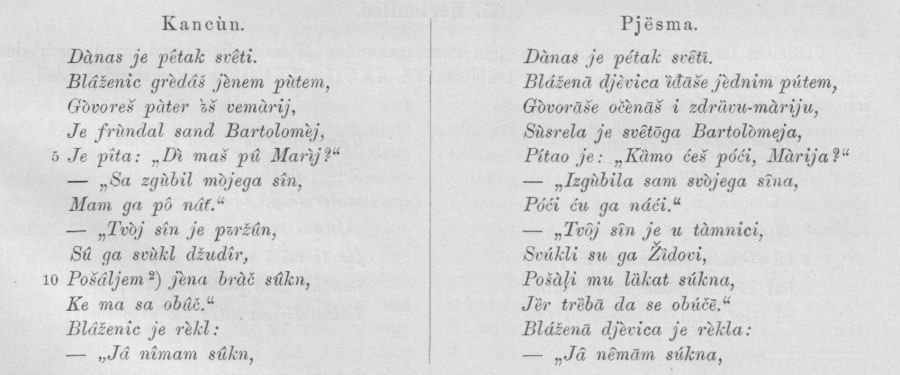 Kancùn.
Dànas je pêtak svêti.
Blâženic grèdâš jènem pùtem,
Gòvoreš pàter ìš vemàrij,
Je frùndal sand Bartolomèj,
5 Je pîta: „Dì maš pû Marìj?“
— „Sa zgùbil mòjega sîn,
Mam ga pô nât́.“
— „Tvòj sîn je pržûn,
Sû ga svùkl džudîr,
10 Pošâljem²) jèna bràč sûkn,
Ke ma sa obûč.“
Blâženic je rèkl:
— „Jâ nîmam sûkn,
Pjësma.
Dànas je pétak svêtī.
Bláženā djèvica ìđāše jèdnim pútem,
Gòvorāše očènāš i zdràvu-màriju,
Sùsrela je svêtōga Bartolòmeja,
Pítao je: „Kȁmo ćeš póći, Màrija?“
— „Izgùbila sam svòjega sîna,
Póći ću ga náći.“
— „Tvôj sîn je u tàmnici,
Svúkli su ga Žìdovi,
Pošàļi mu làkat súkna,
Jȅr trȅbā da se obúčē.“
Blážena djȅvica je rèkla:
— „Jâ nȇmām súkna,